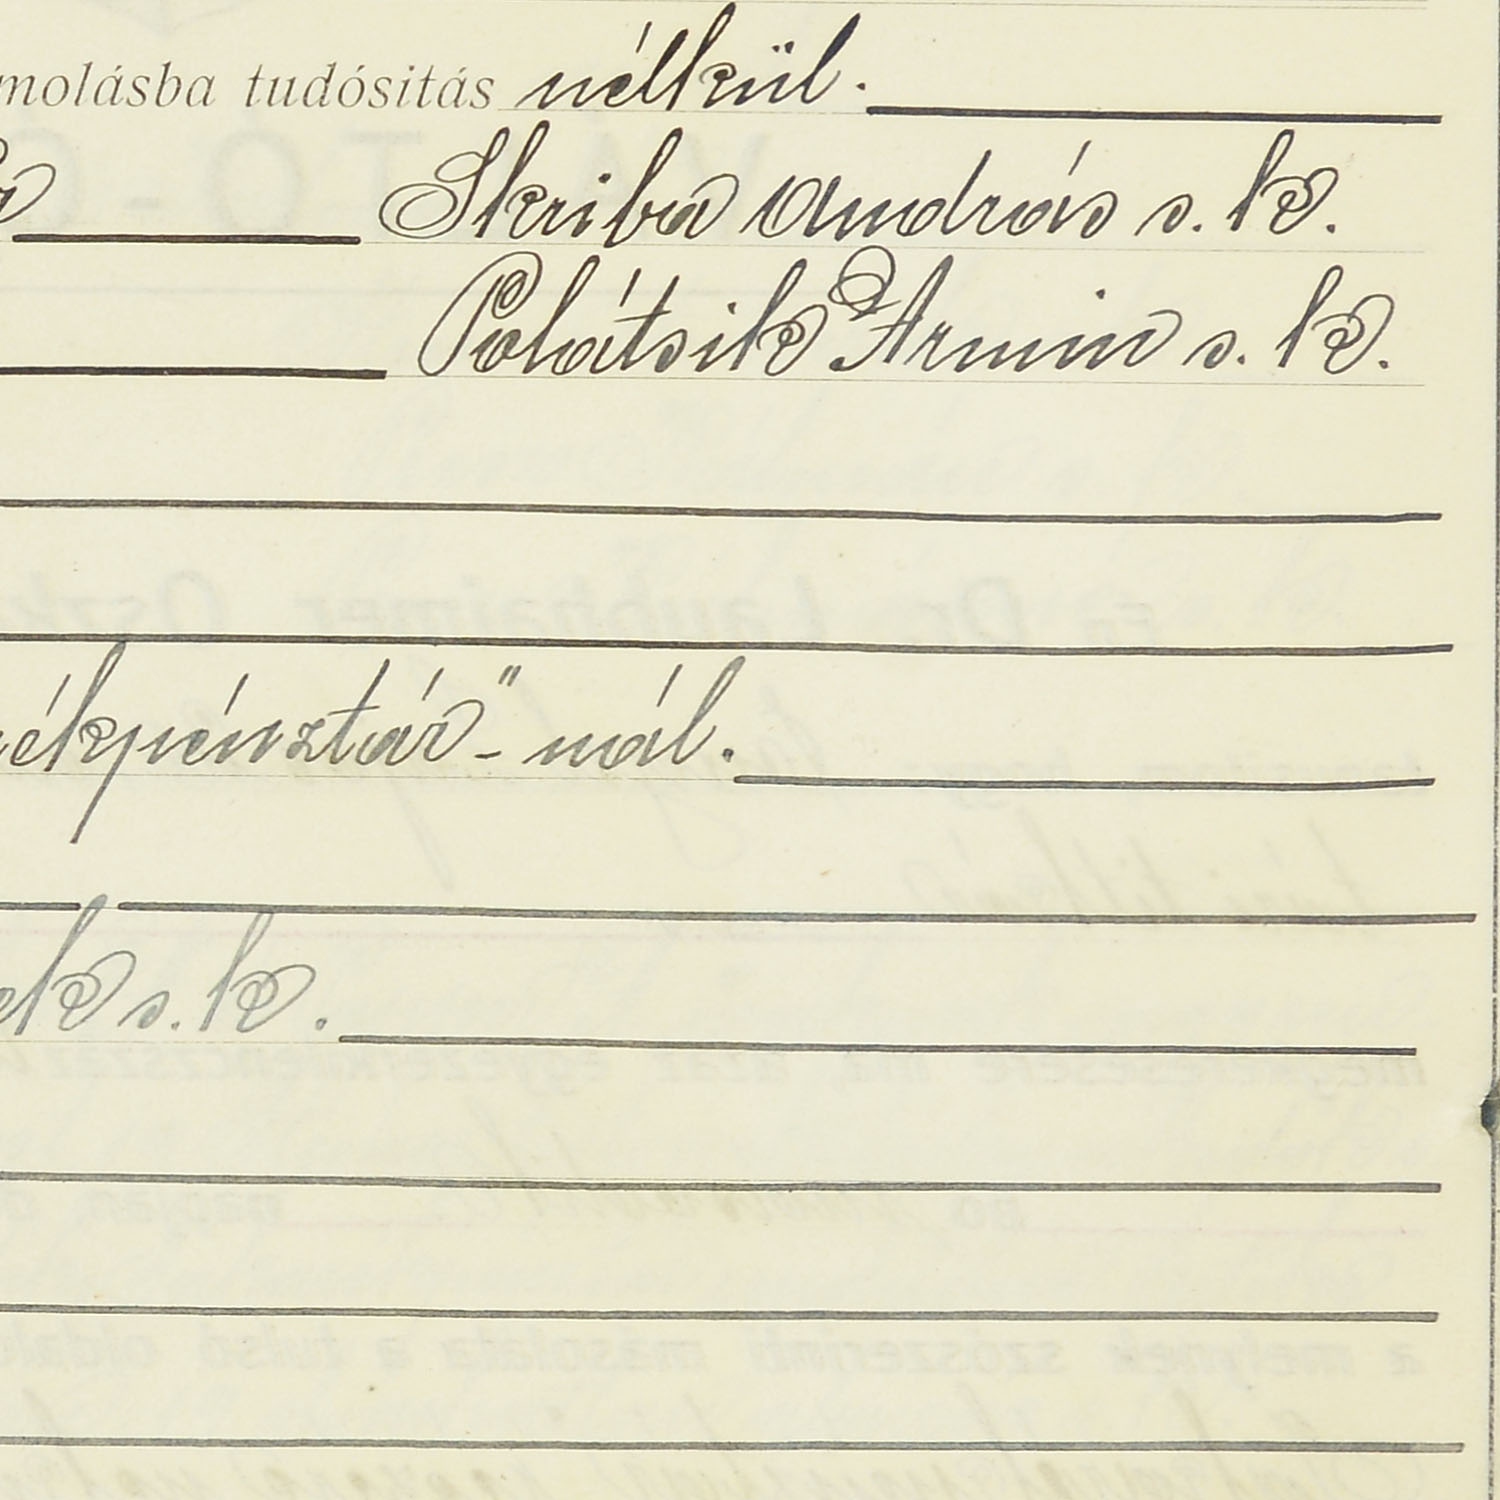 molásba tudósitás nélkül.
Skriba András s. k.
Polátsik Ármin s. k.
ékpénztár"-nál.
ek s. k.